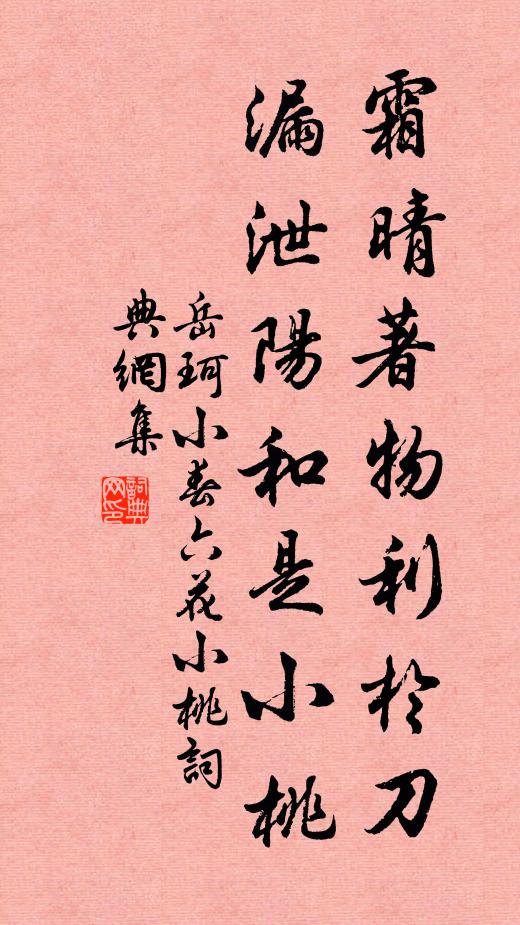 霜晴著物利於刀
漏泄陽和是小桃
岳珂小春六花小桃詞
典網集
詞典網印